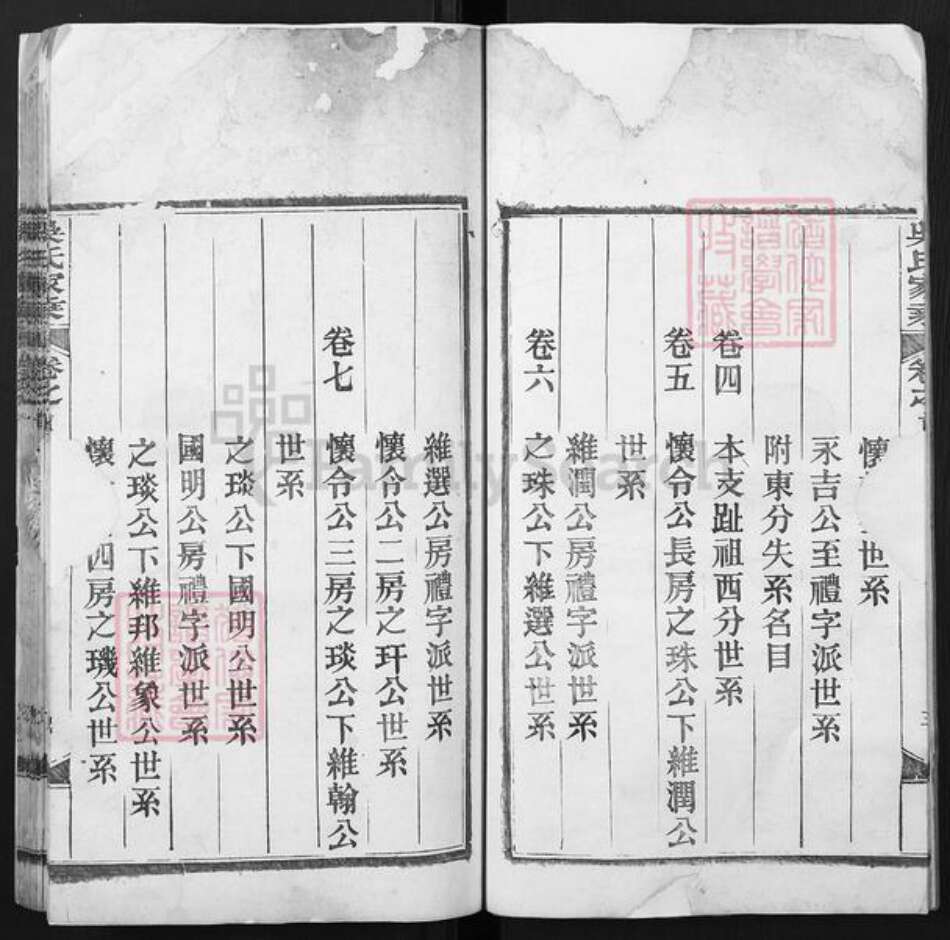 吳氏家乘
卷之首
懷 世系
永吉公至禮字派世系
附東分失系名目
卷四
本支趾祖西分世系
卷五
懷令公長房之珠公下維潤公
世系
維潤公房禮字派世系
卷六
之珠公下維選公世系
維選公房禮字派世系
懷令公二房之玕公世系
卷七
懷令公三房之琰公下維翰公
世系
之琰公下國明公世系
國明公房禮字派世系
之琰公下維邦維象公世系
懷 四房之璣公世系
吳氏家乘
卷之首
FamilySearch